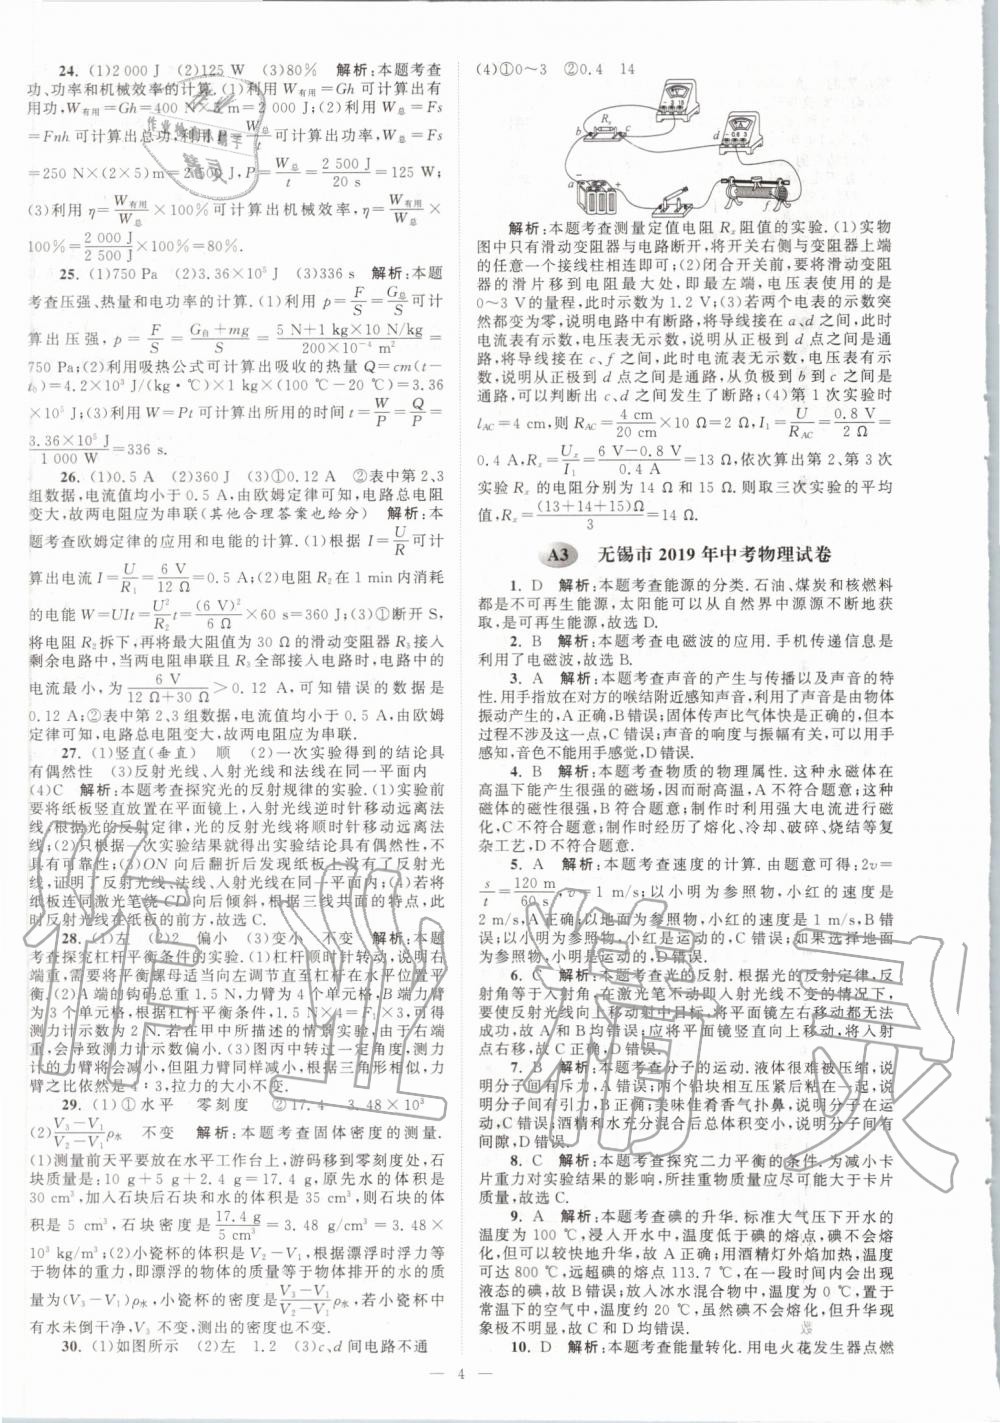 24. (1)2 000 J (2)125 W (3)80% 解析:本题考查
功、功率和机械效率的计算.(1)利用 W有用=Gh可计算出有
用功,W有用=Gh=400 N×5 m=2 000 J;(2)利用 W总=Fs
=Fnh 可计算出总功,利用 P=W总/t 可计算出功率,W总=Fs
=250 N×(2×5)m=2 500 J,P=W总/t=2 500 J/20 s=125 W;
(3)利用 η=W有用/W总×100%可计算出机械效率,η=W有用/W总×
100%=2 000 J/2 500 J×100%=80%.
25. (1)750 Pa (2)3.36×10⁵ J (3)336 s 解析:本题
考查压强、热量和电功率的计算.(1)利用 p=F/S=G总/S可计
算出压强,p=F/S=(G自+mg)/S=(5 N+1 kg×10 N/kg)/(200×10⁻⁴ m²)=
750 Pa;(2)利用吸热公式可计算出吸收的热量 Q=cm(t-
t₀)=4.2×10³ J/(kg·℃)×1 kg×(100 ℃-20 ℃)=3.36
×10⁵ J;(3)利用 W=Pt 可计算出所用的时间 t=W/P=Q/P=
3.36×10⁵ J/1 000 W=336 s.
26. (1)0.5 A (2)360 J (3)①0.12 A ②表中第 2、3
组数据,电流值均小于 0.5 A,由欧姆定律可知,电路总电阻
变大,故两电阻应为串联(其他合理答案也给分) 解析:本
题考查欧姆定律的应用和电功的计算.(1)根据 I=U/R可计
算出电流 I=U/R₁=6 V/12 Ω=0.5 A;(2)电阻 R₂在 1 min 内消耗
的电能 W=UIt=U²/R₂t=(6 V)²/6 Ω×60 s=360 J;(3)①断开 S,
将电阻 R₂拆下,再将最大阻值为 30 Ω的滑动变阻器 R₃接入
剩余电路中,当两电阻串联且 R₃全部接入电路时,电路中的
电流最小,为6 V/(12 Ω+30 Ω)≈0.14 A,可知错误的数据是
0.12 A;②表中第 2、3 组数据,电流值均小于 0.5 A,由欧姆
定律可知,电路总电阻变大,故两电阻应为串联.
27. (1)竖直(垂直) 顺 (2)一次实验得到的结论具
有偶然性 (3)反射光线、入射光线和法线在同一平面内
(4)C 解析:本题考查探究光的反射规律的实验.(1)实验前
要将纸板竖直放置在平面镜上,入射光线逆时针移动远离法
线,根据光的反射定律,光的反射光线将顺时针移动远离法
线;(2)只做一次实验结果就得出实验结论具有偶然性,不具
有普遍性;(3)ON 向后翻折后发现纸板上就没有了反射光
线,证明了反射光线、法线、入射光线在同一平面内;(4)若将
纸板连同激光笔绕 CD 向后倾斜,根据三线共面的特点,此
时反射光线在纸板的前方,故选 C.
28. (1)左 (2)2 偏小 (3)变小 不变 解析:本题
考查探究杠杆平衡条件的实验.(1)杠杆顺时针转动,说明右
端重,需要将平衡螺母适当向左调节直至杠杆在水平位置平
衡.(2)A 端的钩码总重 1.5 N,力臂为 4 个单元格,B 端力臂
为 3 个单元格,根据杠杆平衡条件,1.5 N×4=F₁×3,可得
测力计示数为 2 N.若在甲中所描述的情景实验,由于右端
重,会导致测力计示数偏小.(3)图丙中转过一定角度,测力
计的力臂会减小,但阻力臂同样减小,根据三角形相似,力
臂之比依然是 4∶3,拉力的大小不变.
29. (1)①水平 零刻度 ②17.4 3.48×10³
(2)(V₃-V₁)/(V₂-V₁)ρ水 不变 解析:本题考查固体密度的测量.
(1)测量前天平要放在水平工作台上,游码移到零刻度处,石
块质量是:10 g+5 g+2.4 g=17.4 g,原先水的体积是
30 cm³,加入石块后石块和水的体积是 35 cm³,则石块的体
积是 5 cm³,石块密度是:17.4 g/5 cm³=3.48 g/cm³=3.48×
10³ kg/m³;(2)小瓷杯的体积是 V₂-V₁,根据漂浮时浮力等于
物体的重力,即漂浮的物体的质量等于物体排开的水的质
量为(V₃-V₁)ρ水,小瓷杯的密度是(V₃-V₁)/(V₂-V₁)ρ水,若小瓷杯中
有水未倒干净,V₃不变,测出的密度也不变.
30. (1)如图所示 (2)左 1.2 (3)c、d 间电路不通
(4)①0~3 ②0.4 14
解析:本题考查测量定值电阻 Rₓ阻值的实验.(1)实物
图中只有滑动变阻器与电路断开,将开关右侧与变阻器上端
的任意一个接线柱相连即可;(2)闭合开关前,要将滑动变阻
器的滑片移到电阻最大处,即最左端,电压表使用的是
0~3 V 的量程,此时示数为 1.2 V;(3)若两个电表的示数突
然都变为零,说明电路中有断路,将导线接在 a、d 之间,此时
电流表有示数,电压表无示数,说明 d 点之后是通路,将导线
接到 b、d 之间,此时电流表无示数,电压表有示数,
说明从电源正极到 d 点之间是通路,从负极到 c 之间是通
路,可以判断出 c、d 之间发生了断路;(4)第 1 次实验时
lAC=4 cm,则 RAC=4 cm/20 cm×10 Ω=2 Ω,I₁=U/RAC=0.8 V/2 Ω=
0.4 A,Rₓ=Uₓ/I₁=(6 V-0.8 V)/0.4 A=13 Ω,依次算出第 2、第 3 次
实验 Rₓ 的电阻分别为 14 Ω和 15 Ω.则取三次实验的平均
值,Rₓ=(13+14+15)Ω/3=14 Ω.
A3 无锡市 2019 年中考物理试卷
1. D 解析:本题考查能源的分类.石油、煤炭和核燃料
都是不可再生能源,太阳能可以从自然界中源源不断地获
取,是可再生能源,故选 D.
2. B 解析:本题考查电磁波的应用.手机传递信息是
利用了电磁波,故选 B.
3. A 解析:本题考查声音的产生与传播以及声音的特
性.用手指放在对方的喉结附近感知声音,可证明声是由物体
振动产生的,A 正确,B 错误;固体传声与气体快是正确的,但本
过程不涉及这一点,C 错误;声音的响度与振幅有关,可以用手
感知,音色不能用手感知,D 错误.
4. B 解析:本题考查物质的物理属性.这种永磁体在
高温下能产生很强的磁场,因而耐高温,A 不符合题意;这种
磁体的磁性很强,B 符合题意;制作时利用强大电流进行磁
化,C 不符合题意;制作时经历了熔化、冷却、破碎、烧结等复
杂工艺,D 不符合题意.
5. A 解析:本题考查速度的计算.由题意可得:2v=
s/t=120 m/60 s,v=1 m/s,以小明为参照物,小红的速度是
2 m/s,A 正确;以小明为参照物,小红的速度是 2 m/s,B 错
误;以小明为参照物,小红是运动的,C 错误;如果选择地面
为参照物,小明是运动的,D 错误.
6. C 解析:本题考查光的反射.根据光的反射定律,反
射角等于入射角,在激光笔不动即入射光线不变的情况下,
要使反射光线向上移动射中目标,将平面镜左右移动都无变
化,故 A 和 B 均错误;应将平面镜竖直向上移动,将入射
点右移,故 C 正确,D 错误.
7. B 解析:本题考查分子的运动.液体很难被压缩,说
明分子间有斥力,A 错误;两个铅块相互挤压粘在一起,说明
分子间有引力,B 正确;美味佳肴香气扑鼻,说明分子在运
动,C 错误;酒精和水充分混合后总体积变小,说明分子间有
间隙,D 错误.
8. C 解析:本题考查探究二力平衡的条件.为减小卡
片重力对实验结果的影响,所挂重物质量应尽可能大于卡片
质量,故选 C.
9. A 解析:本题考查碘的升华.标准大气压下开水的
温度为 100 ℃,没有达到碘的熔点,碘不会出现熔化现象,
但可以较快地升华,故 A 正确;用酒精灯外焰加热,温度
可达 800 ℃,远超碘的熔点 113.7 ℃,一段时间内会出现
液态的碘,B 错误;放入冰水混合物中,温度为 0 ℃,置于
常温下的空气中,温度约为 20 ℃,虽然碘不会熔化,但升华
现象极不明显,故 C 和 D 均错误.
10. D 解析:本题考查能量转化.用电火花发生器点燃
— 4 —
作业精灵